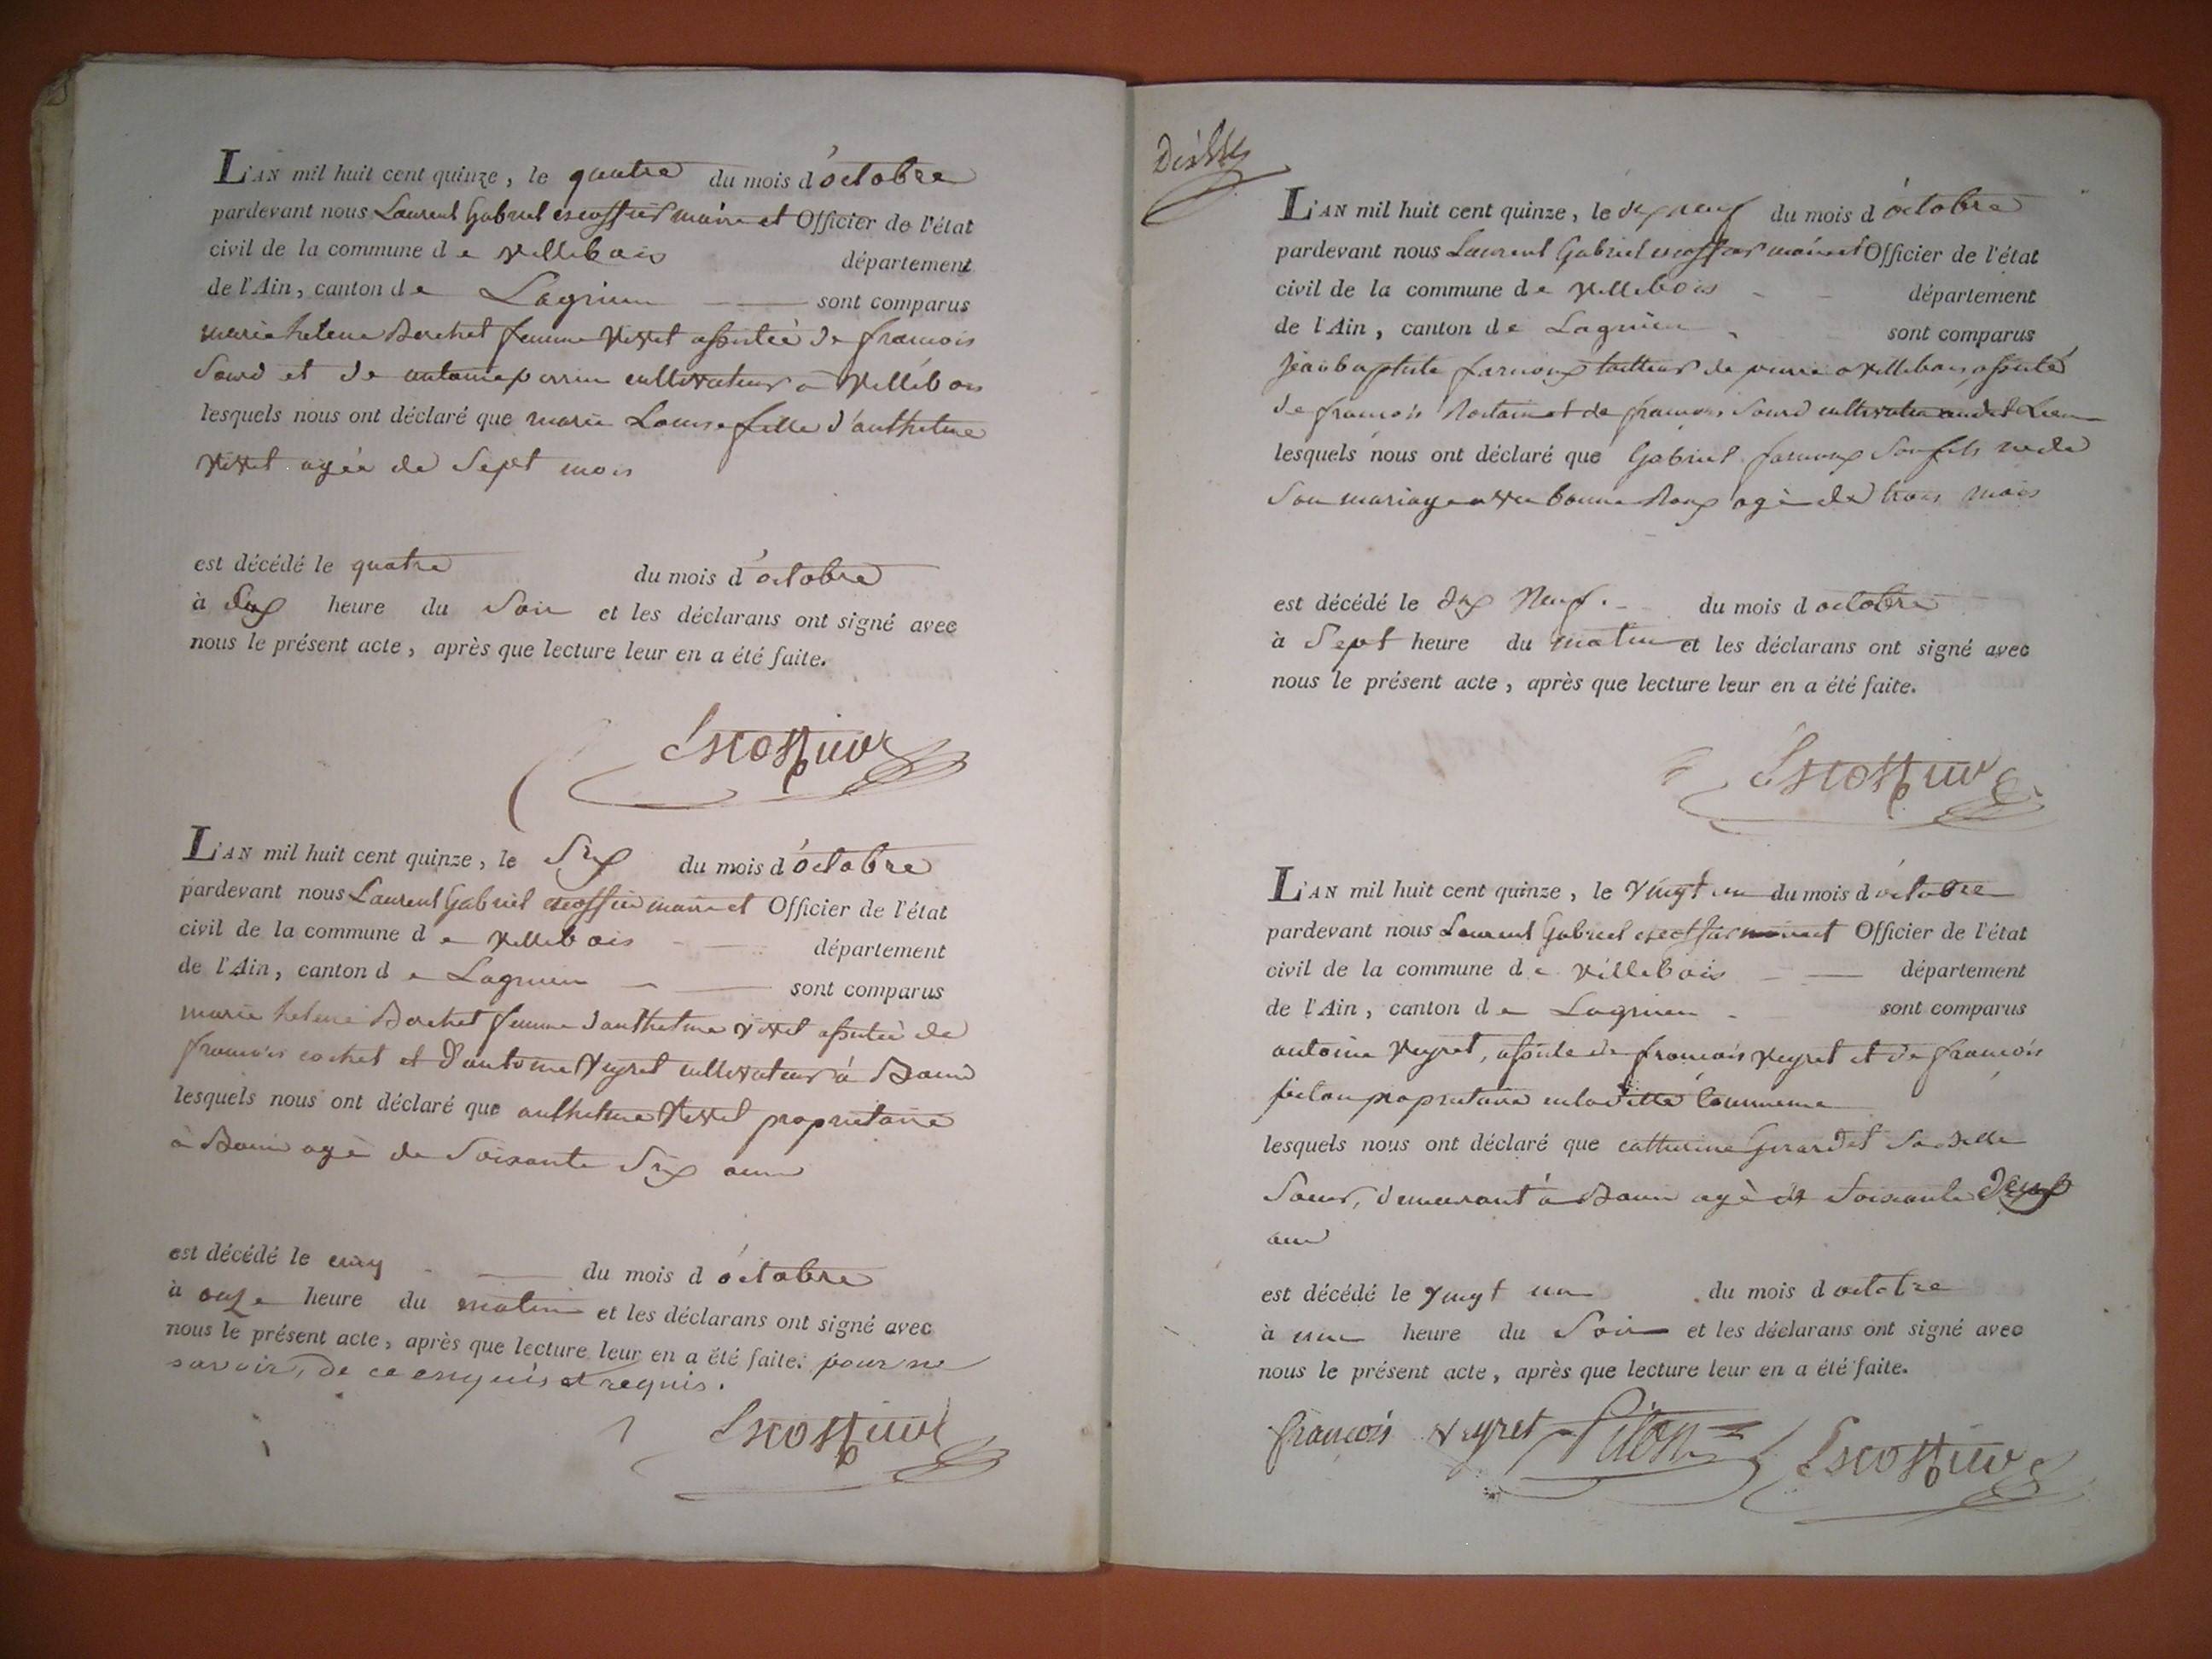 L'AN mil huit cent quinze, le quatre du mois d'octobre
pardevant nous Laurent Gabriel escoffier maire et Officier de l'état
civil de la commune de villebois département
de l'Ain, canton de Lagnieu sont comparus
marie helene Berchet femme vivet assistée de francois
Sourd et de antoine perrin cultivateurs a villebois
lesquels nous ont déclaré que marie Louise fille d'anthelme
vivet agée de Sept mois
est décédé le quatre du mois d'octobre
à heure du Soir et les déclarans ont signé avec
nous le présent acte, après que lecture leur en a été faite.
Escoffier
L'AN mil huit cent quinze, le Six du mois d'octobre
pardevant nous Laurent Gabriel escoffier maire et Officier de l'état
civil de la commune de villebois département
de l'Ain, canton de Lagnieu sont comparus
marie helene Berchet femme d'anthelme vivet assistée de
francois cochet et d'antoine Veyret cultivateurs à Bouis
lesquels nous ont déclaré que anthelme vivet proprietaire
à Bouis agé de Soixante Six ans
est décédé le cinq du mois d'octobre
à onze heure du matin et les déclarans ont signé avec
nous le présent acte, après que lecture leur en a été faite. pour ne
savoir, de ce enquis et requis.
Escoffier
L'AN mil huit cent quinze, le dix neuf du mois d'octobre
pardevant nous Laurent Gabriel escoffier maire et Officier de l'état
civil de la commune de villebois département
de l'Ain, canton de Lagnieu sont comparus
jean baptiste farnoux tailleur de pierre a villebois, assisté
de francois et de francois Sourd cultivateurs audit Lieu
lesquels nous ont déclaré que Gabriel farnoux Son fils né de
Son mariage avec bonne Roux agé de trois mois
est décédé le dix Neuf du mois d octobre
à Sept heure du matin et les déclarans ont signé avec
nous le présent acte, après que lecture leur en a été faite.
Escoffier
L'AN mil huit cent quinze, le vingt un du mois d'octobre
pardevant nous Laurent Gabriel escoffier maire et Officier de l'état
civil de la commune de villebois département
de l'Ain, canton de Lagnieu sont comparus
antoine Veyret, assisté de francois veyret et de francois
proprietaire en la ditte Commune
lesquels nous ont déclaré que catherine Girardet Sa belle
Soeur, demeurant à Bouis agé de Soixante Deux
ans
est décédé le vingt un du mois d octobre
à une heure du Soir et les déclarans ont signé avec
nous le présent acte, après que lecture leur en a été faite.
francois veyret Escoffier